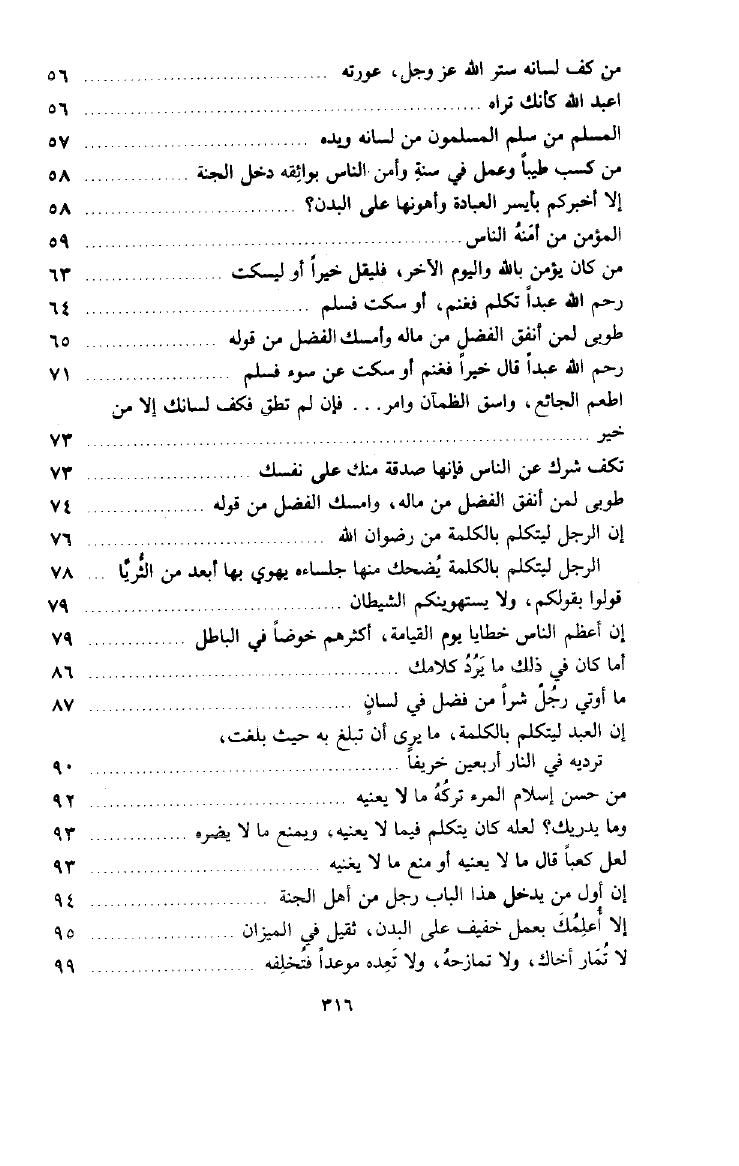 من كف لسانه ستر الله عز وجل، عورته ........ ٥٦
اعبد الله كأنك تراه ........ ٥٦
المسلم من سلم المسلمون من لسانه ويده ........ ٥٧
من كسب طيباً وعمل في سنةٍ وأمن الناس بوائقه دخل الجنة ........ ٥٨
إلا أخبركم بأيسر العبادة وأهونها على البدن؟ ........ ٥٨
المؤمن من أمَنهُ الناس ........ ٥٩
من كان يؤمن بالله واليوم الآخر، فليقل خيراً أو ليسكت ........ ٦٣
رحم الله عبداً تكلم فغنم، أو سكت فسلم ........ ٦٤
طوبى لمن أنفق الفضل من ماله وأمسك الفضل من قوله ........ ٦٥
رحم الله عبداً قال خيراً فغنم أو سكت عن سوء فسلم ........ ٧١
اطعم الجائع، واسق الظمآن وامر... فإن لم تطق فكف لسانك إلا من
خير ........ ٧٣
تكف شرك عن الناس فإنها صدقة منك على نفسك ........ ٧٣
طوبى لمن أنفق الفضل من ماله، وامسك الفضل من قوله ........ ٧٤
إن الرجل ليتكلم بالكلمة من رضوان الله ........ ٧٦
الرجل ليتكلم بالكلمة يُضحك منها جلساءه يهوي بها أبعد من الثُّريَّا ... ٧٨
قولوا بقولكم، ولا يستهوينكم الشيطان ........ ٧٩
إن أعظم الناس خطايا يوم القيامة، أكثرهم خوضاً في الباطل ........ ٧٩
أما كان في ذلك ما يَرُدُ كلامك ........ ٨٦
ما أوتي رجُلٌ شراً من فضل في لسانٍ ........ ٨٧
إن العبد ليتكلم بالكلمة، ما يرى أن تبلغ به حيث بلغت،
ترديه في النار أربعين خريفاً ........ ٩٠
من حسن إسلام المرء تركُهُ ما لا يعنيه ........ ٩٢
وما يدريك؟ لعله كان يتكلم فيما لا يعنيه، ويمنع ما لا يضره ........ ٩٣
لعل كعباً قال ما لا يعنيه أو منع ما لا يغنيه ........ ٩٣
إن أول من يدخل هذا الباب رجل من أهل الجنة ........ ٩٤
إلا أُعلِمُكَ بعمل خفيف على البدن، ثقيل في الميزان ........ ٩٥
لا تُمَار أخاك، ولا تمازحهُ، ولا تَعِده موعداً فتُخلِفه ........ ٩٩
٣١٦